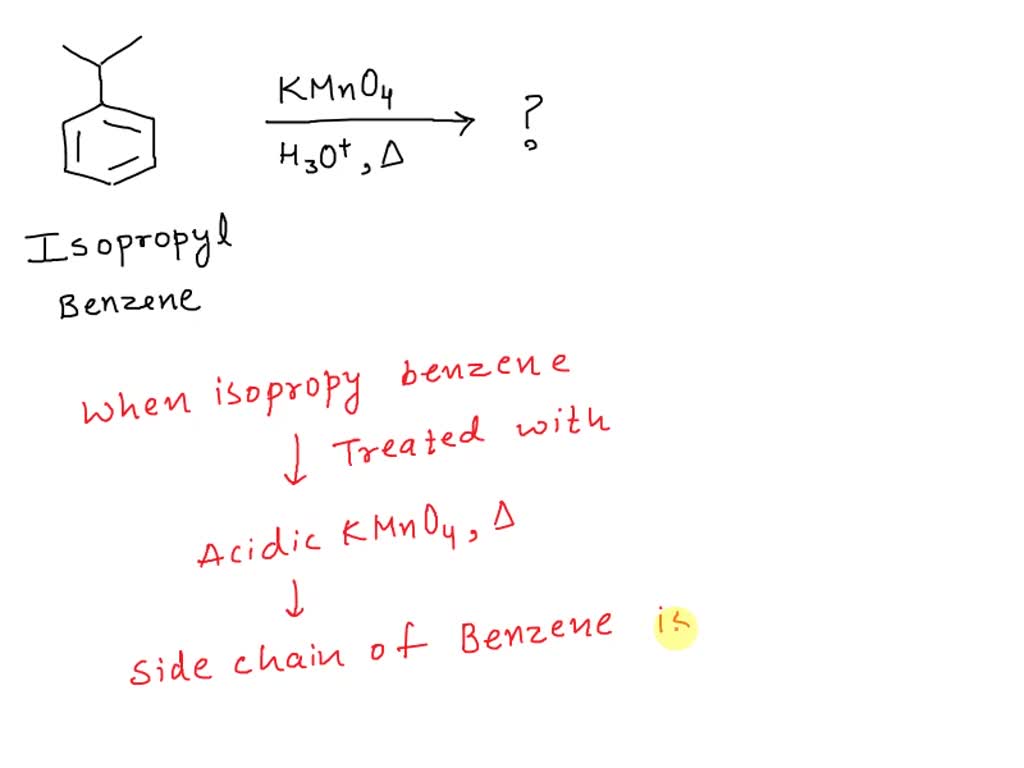 KMnO4
H3O+, Δ
?
Isopropyl
Benzene
When isopropy benzene
↓ Treated with
Acidic KMnO4, Δ
↓
Side chain of Benzene is